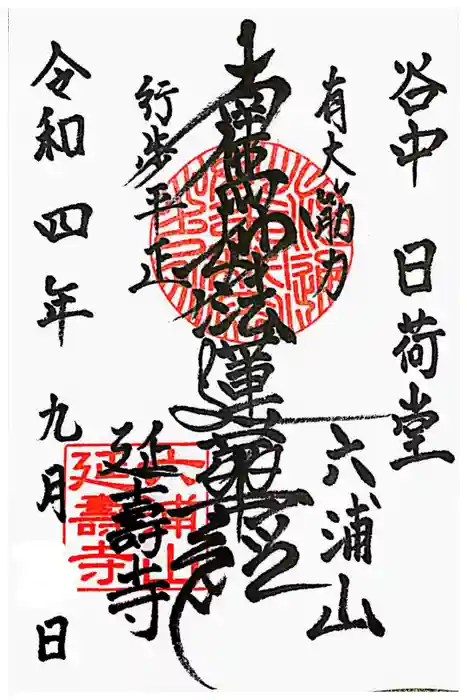 谷中 日荷堂
六浦山
有大筋力
南無妙法蓮華経
行歩平正
延壽寺
六浦山
延壽寺
令和四年九月 日